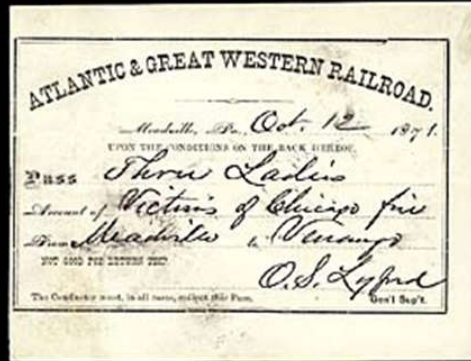 ATLANTIC & GREAT WESTERN RAILROAD.
Meadville, Pa., Oct. 12 1871.
UPON THE CONDITIONS ON THE BACK HEREOF.
Pass Three Ladies
Account of Victims of Chicago fire
From Meadville to Venango
NOT GOOD FOR RETURN TRIP
O. S. Lyford
The Conductor must, in all cases, collect this Pass. Gen'l Sup't.